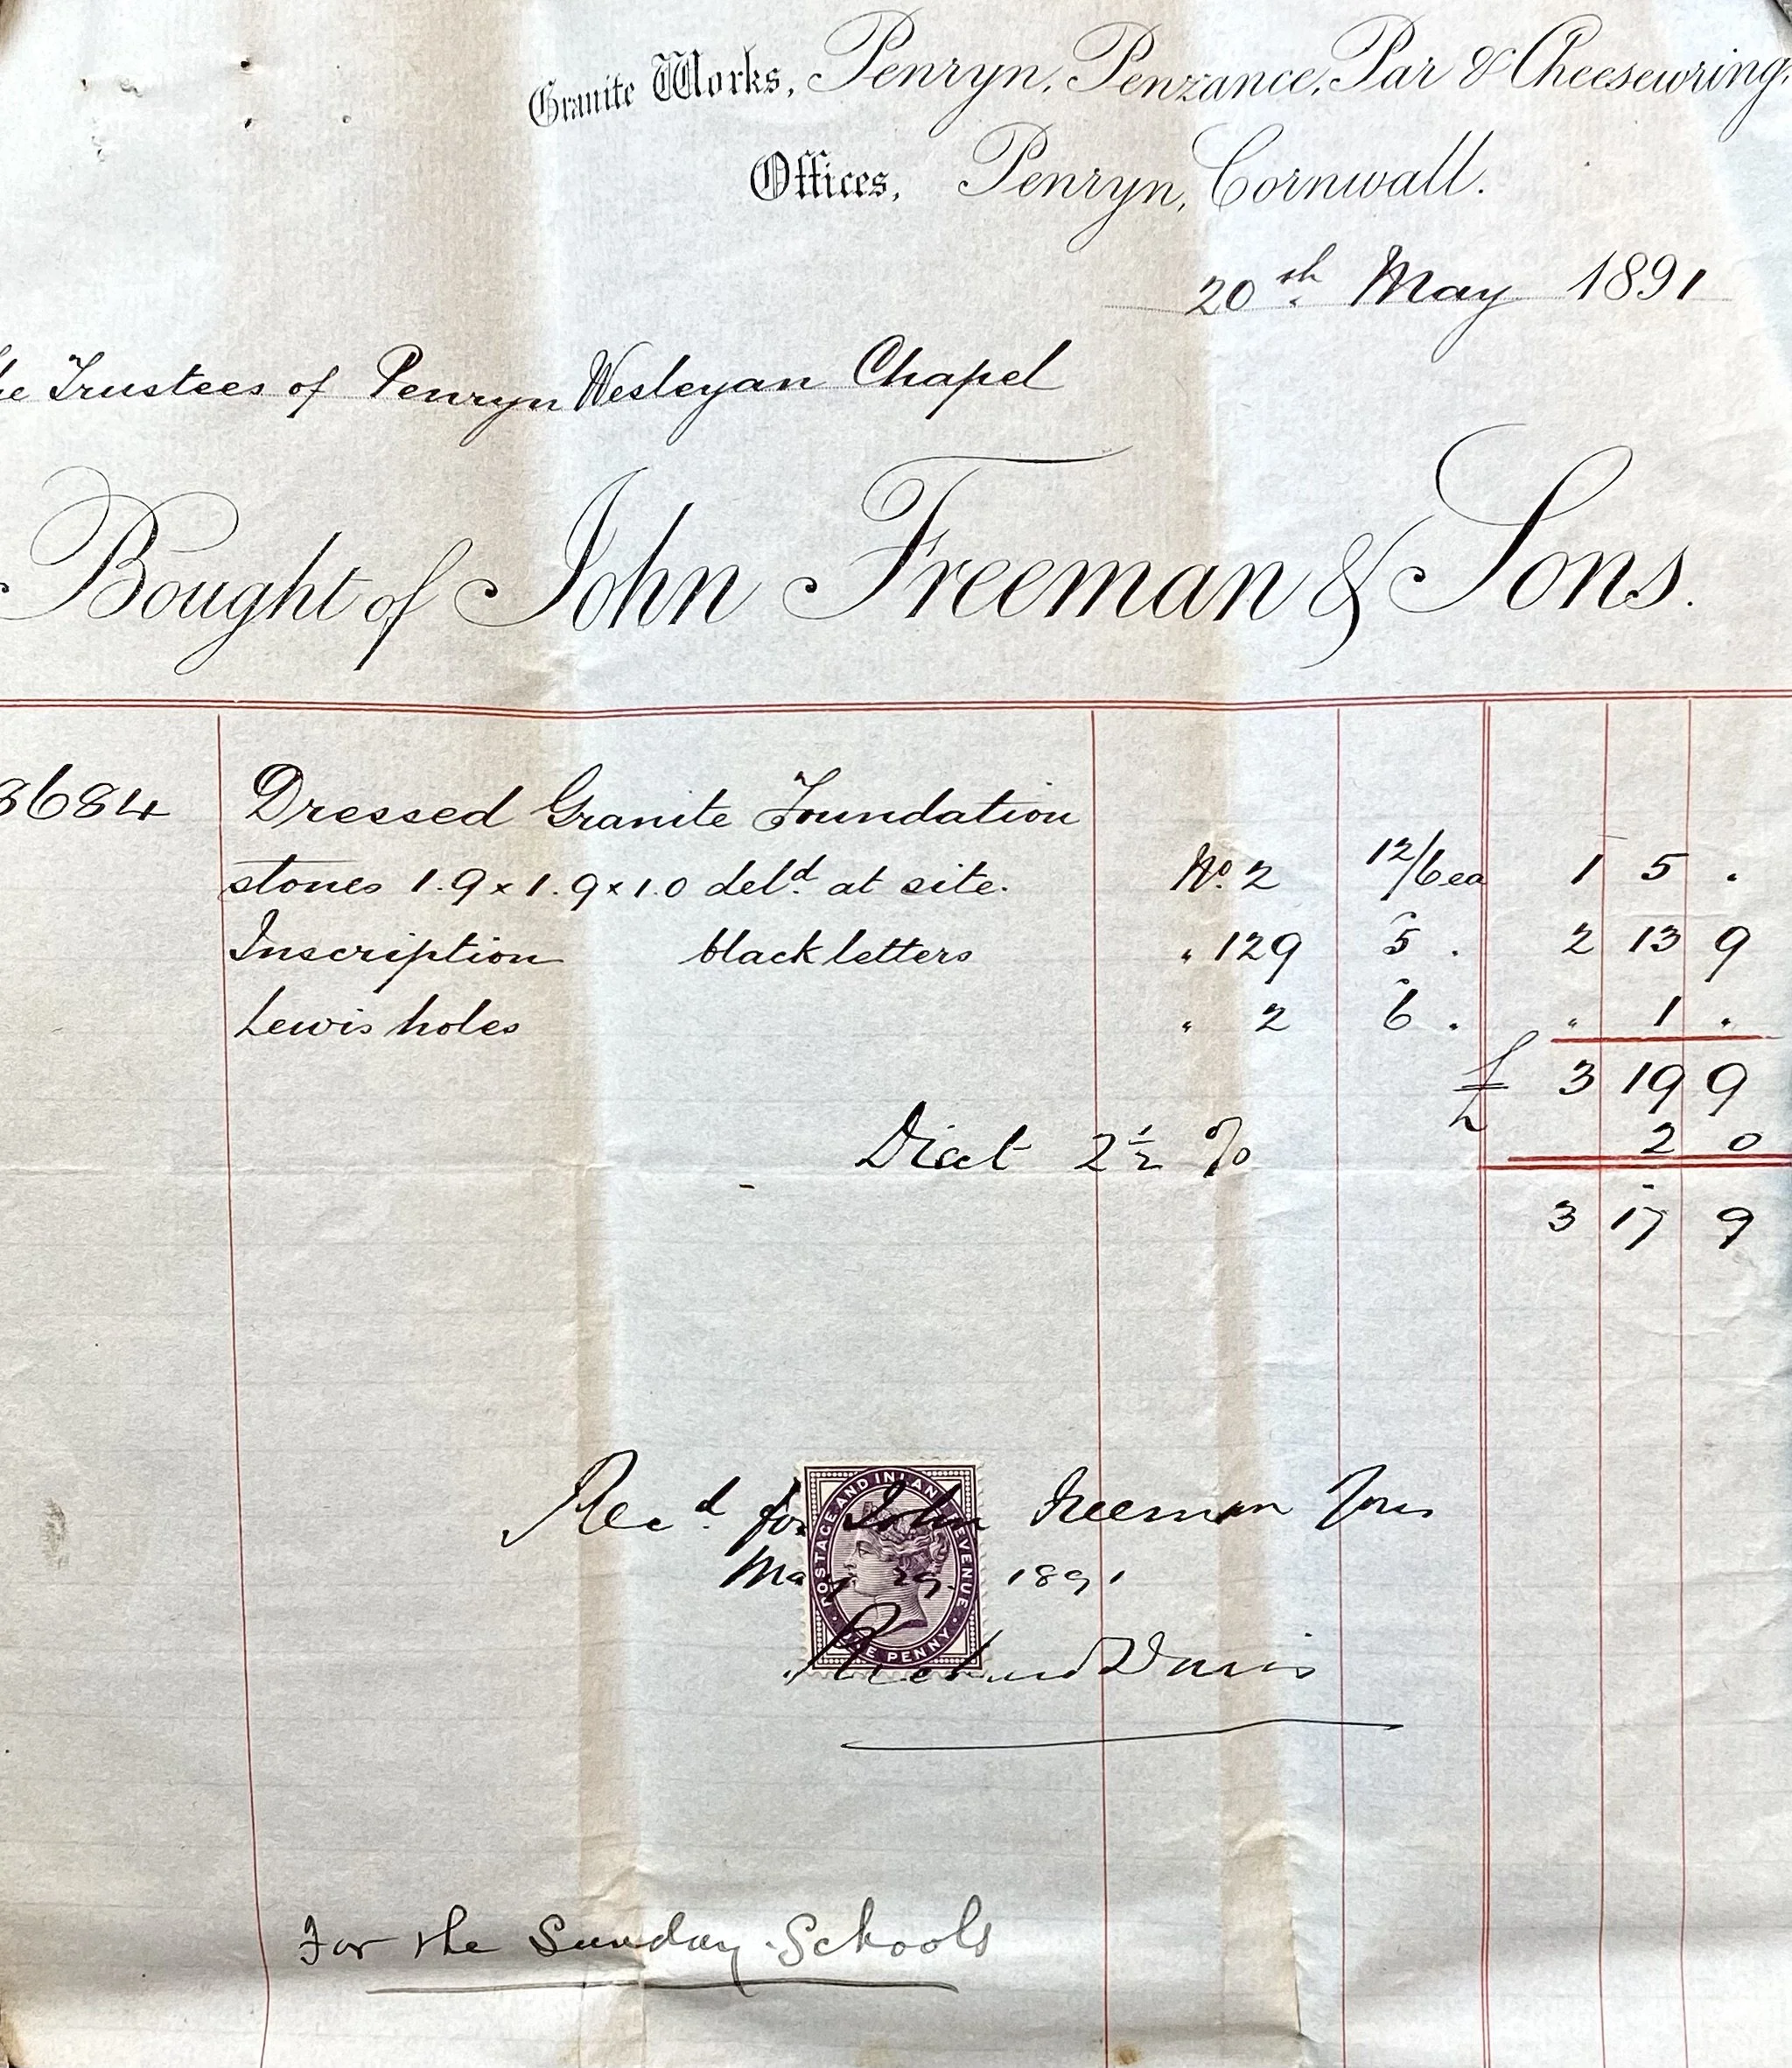 Granite Works, Penryn, Penzance, Par & Cheesewring,
Offices, Penryn, Cornwall.
20th May 1891
he Trustees of Penryn Wesleyan Chapel
Bought of John Freeman & Sons.
8684 Dressed Granite Foundation
stones 1.9 x 1.9 x 1.0 deld. at site. No. 2 12/6 ea 1 5 .
Inscription black letters " 129 5 . 2 13 9
Lewis holes " 2 6 . " 1 .
£ 3 19 9
Disct 2½ % 2 0
3 17 9
Recd for John Freeman Sons
May 29 1891
Richard Davis
POSTAGE AND INLAND REVENUE
ONE PENNY
For the Sunday Schools